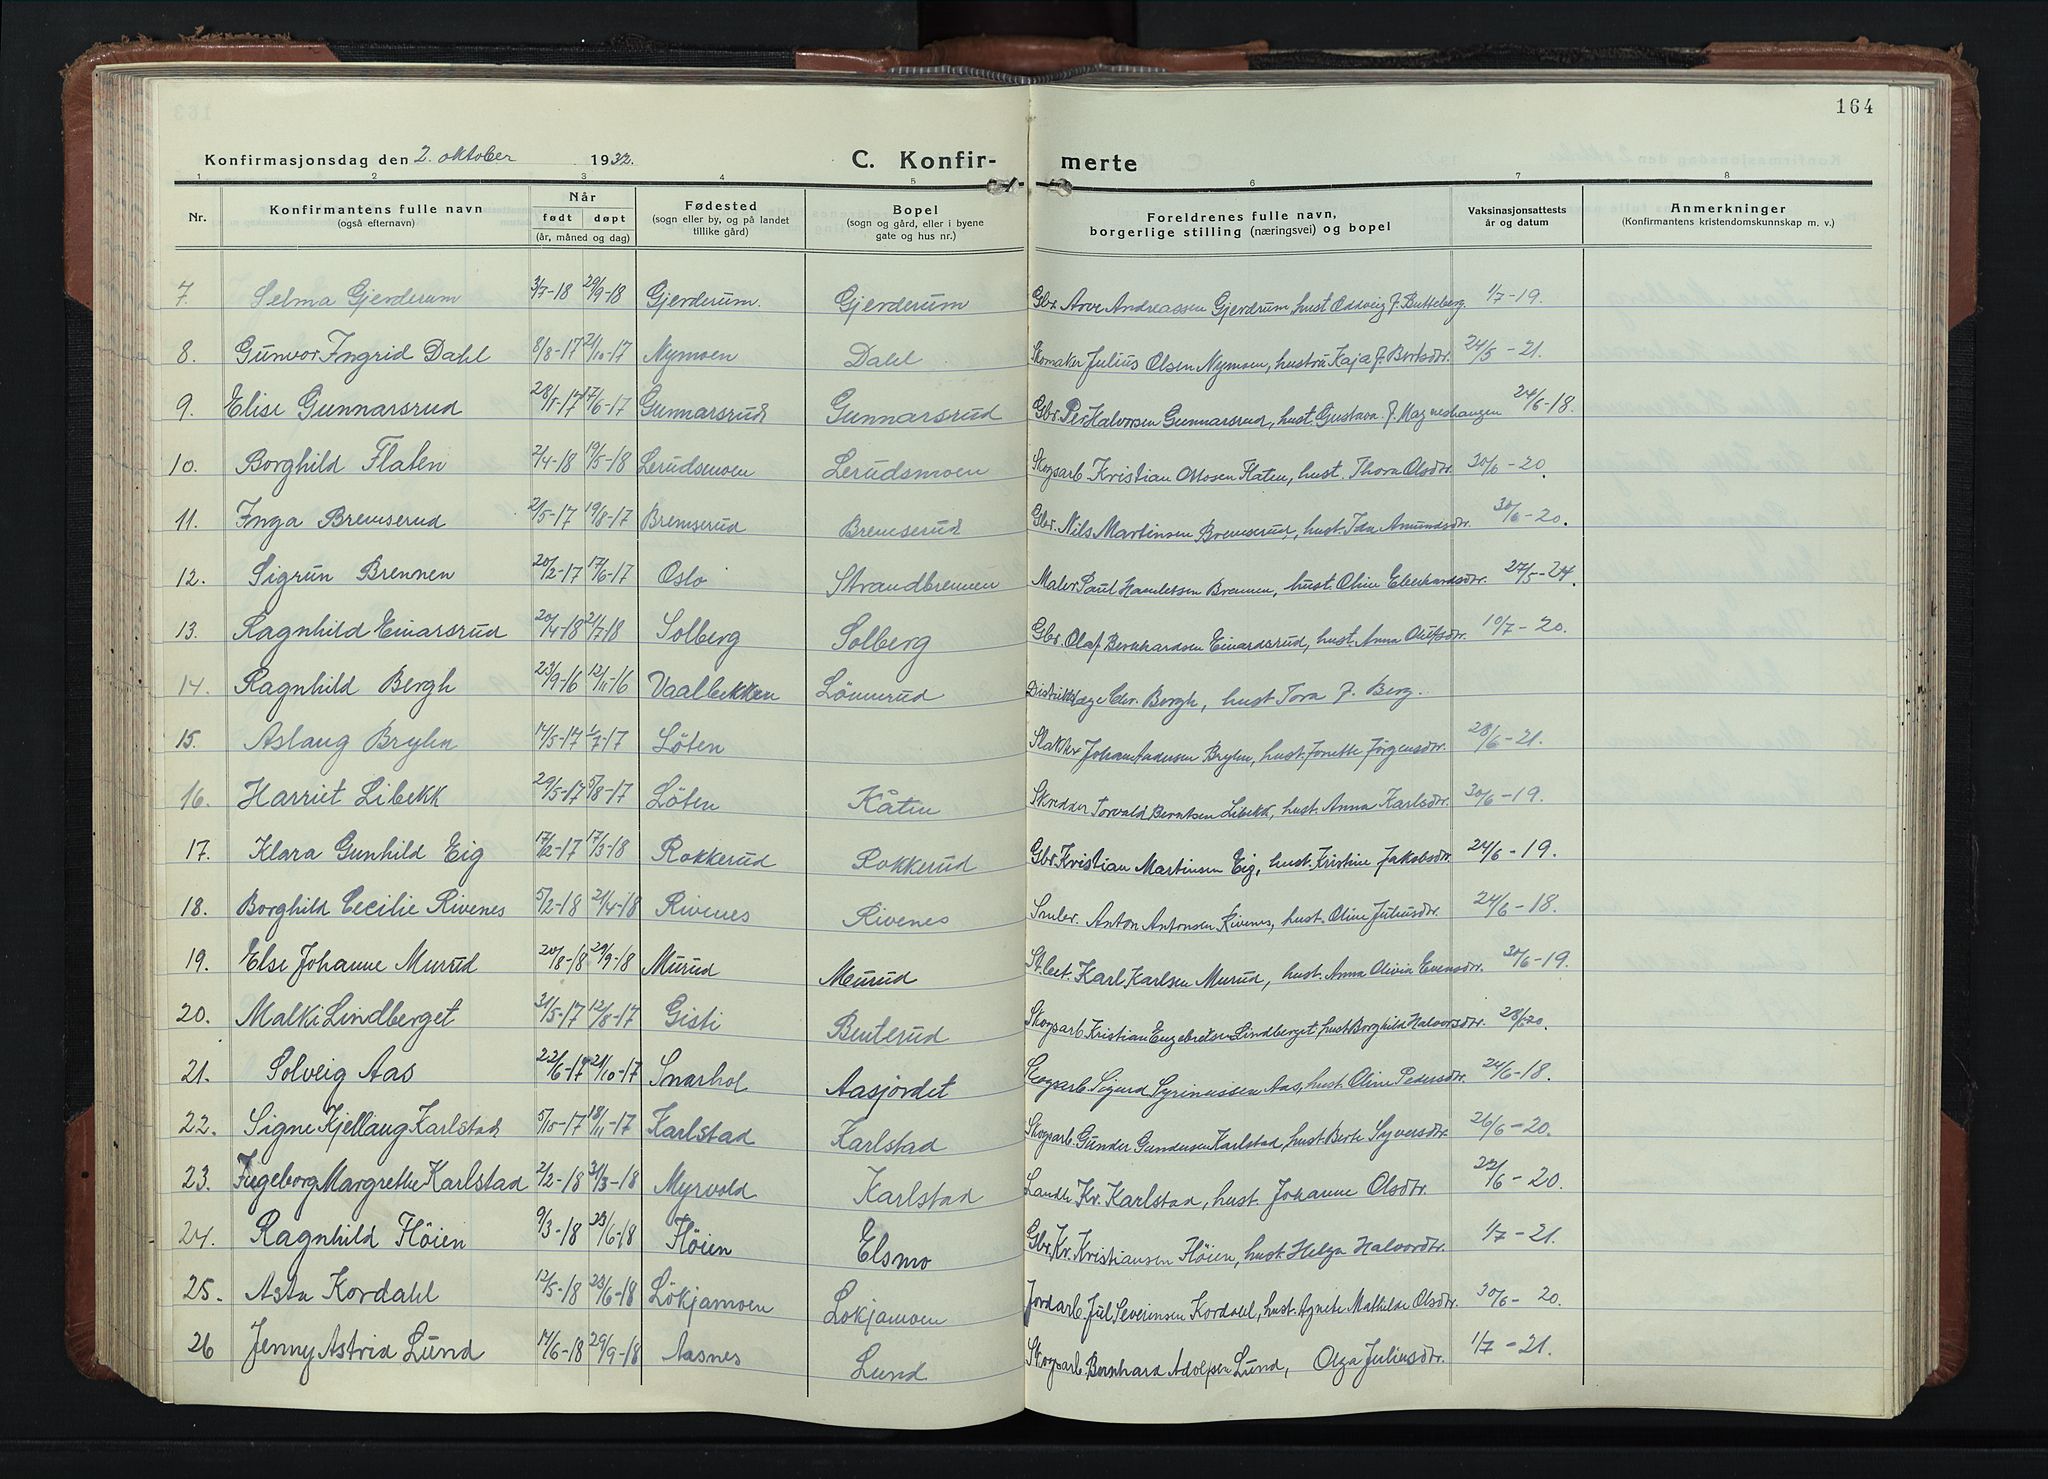 164
Konfirmasjonsdag den 2. oktober 1932. C. Konfir- merte
1 2 3 4 5 6 7 8
Nr. Konfirmantens fulle navn (også efternavn) Når født døpt (år, måned og dag) Fødested (sogn eller by, og på landet tillike gård) Bopel (sogn og gård, eller i byene gate og hus nr.) Foreldrenes fulle navn, borgerlige stilling (næringsvei) og bopel Vaksinasjonsattests år og datum Anmerkninger (Konfirmantens kristendomskunnskap m. v.)
7. Selma Gjerderum 3/7-18 29/9-18 Gjerderum. Gjerderum Gbr. Arve Andreassen Gjerdrum, hust. Oddveig f. Butteberg. 1/7-19.
8. Gunvor Ingrid Dahl 8/8-17 21/10-17 Nymoen Dahl Skomaker Julius Olsen Nymoen, hustru Kaja f. Bertsdtr. 24/5-21.
9. Elise Gunnarsrud 17/6-17 Gunnarsrud Gunnarsrud Gbr. Per Halvorsen Gunnarsrud, hust. Gustava f. Magneshaugen 24/6-18.
10. Borghild Flaten 2/4-18 19/5-18 Lerudsmoen Lerudsmoen Skogsarb. Kristian Ottosen Flaten, hust. Thora Olsdtr. 30/6-20.
11. Inga Bremserud 2/5-17 19/8-17 Bremserud Bremserud Gbr. Nils Martinsen Bremserud, hust. Ida Amundsdtr. 30/6-20.
12. Sigrun Brennen 20/2-17 17/6-17 Oslo Strandbrennen Maler Paul Hamletsen Brennen, hust. Oline Eberhardsdtr. 27/5-24.
13. Ragnhild Einarsrud 20/4-18 21/7-18 Solberg Solberg Gbr. Olaf Bernhardsen Einardsrud, hust. Anna Olufsdtr. 10/7-20.
14. Ragnhild Bergh 23/9-16 12/11-16 Vaalbekken Lömmerud Distriktslæge Bergh, hust Tora f. Berg.
15. Aslaug Bryhn 14/5-17 1/7-17 Löten Slakter Johan Andersen Bryhn, hust. Jonette Jørgensdtr. 28/6-21.
16. Harriet Libekk 29/5-17 5/8-17 Löten Kåtin Skredder Torvald Berntsen Libekk, hust. Anna Karlsdtr. 30/6-19.
17. Klara Gunhild Eig 17/12-17 17/3-18 Rokkerud Rokkerud Gbr. Kristian Martinsen Eig, hust. Kristine Jakobsdtr. 24/6-19.
18. Borghild Cecilie Rivenes 5/2-18 21/4-18 Rivenes Rivenes Smbr. Anton Antonsen Rivenes, hust. Oline Juliusdtr. 24/6-18.
19. Else Johanne Murud 20/8-18 29/9-18 Murud Murud St.bet. Karl Karlsen Murud, hust. Anna Olivia Evensdtr. 30/6-19.
20. Malki Lindberget 31/5-17 12/8-17 Gisti Benterud Skogsarb. Kristian Engebretsen Lindberget, hust Borghild Halvorsdtr. 28/6-20.
21. Solveig Aas 22/6-17 21/10-17 Snarhol Aasjordet Skogsarb. Sigurd Syrinussen Aas, hust. Oline Pedersdtr. 24/6-18.
22. Signe Kjellaug Karlstad 5/10-17 18/11-17 Karlstad Karlstad Skogsarb. Gunder Gundersen Karlstad, hust Berte Syversdtr. 26/6-20.
23. Ingeborg Margrethe Karlstad 2/2-18 31/3-18 Myrvold Karlstad Landh. Kr. Karlstad, hust. Johanne Olsdtr. 22/6-20.
24. Ragnhild Höien 9/3-18 23/6-18 Höien Elsmo Gbr. Kr. Kristiansen Höien, hust. Helga Halvordtr. 1/7-21.
25. Asta Kordahl 12/5-18 23/6-18 Lökjamoen Lökjamoen Jordarb. Jul Severinsen Kordahl, hust. Agnete Mathilde Olsdtr. 30/6-20.
26 Jenny Astrid Lund 14/6-18 29/9-18 Aasnes Lund Skogsarb. Bernhard Adolfsen Lund, Olga Juliusdtr. 1/7-21.